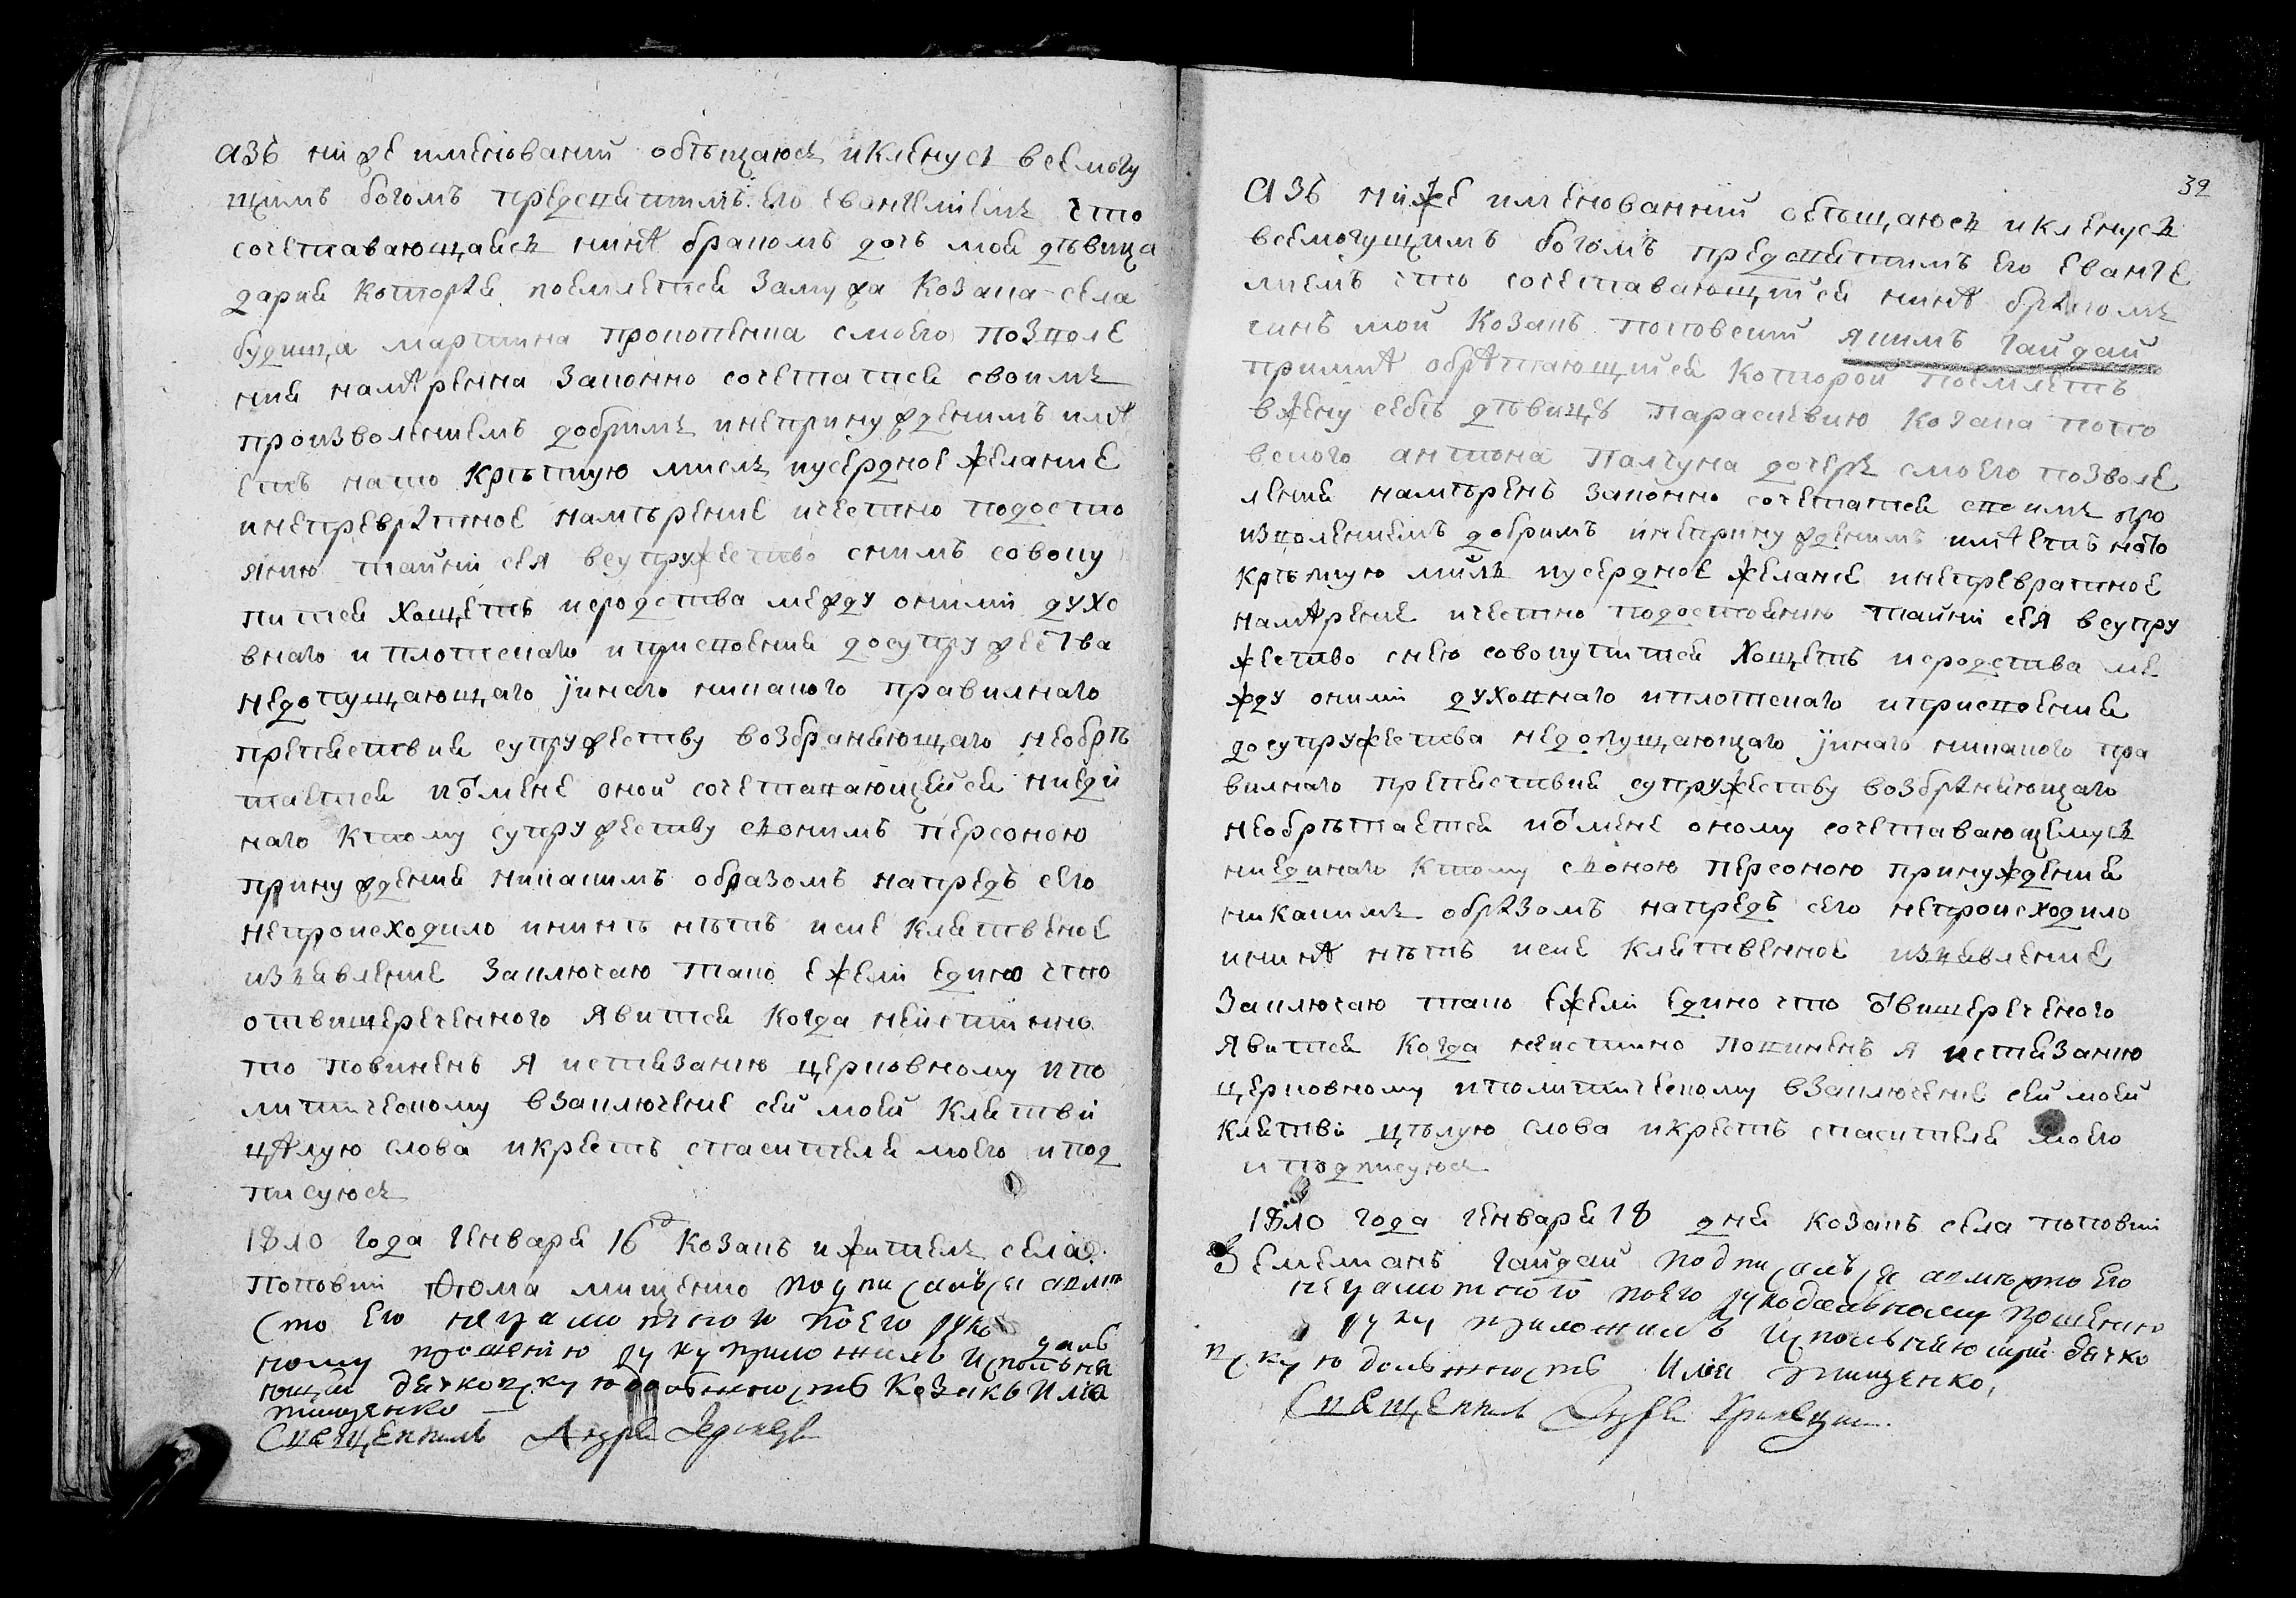 азъ нижеименований обѣщаюсь и кленусь всемогу
щимъ богомъ предсвятимъ его евангелиемъ что
сочетавающаяся нинѣ бракомъ дочь моя дѣвица
дария которая поемлется замужа козака села
будища мартина прокопенка с моего позволе
ния намѣренна законно сочетатися своимъ
произволениемъ добримъ и непринужденимъ имѣ
етъ на то крѣпкую мисль и усердное желание
и непревратное намѣрение и честно по досто
янию тайни сея в супружество с нимъ совоку
питися хощетъ и сродства между оними духо
внаго и плотскаго и присвоения до супружества
недопущающаго и инаго никакого правилнаго
препятствия супружеству возбраняющаго необрѣ
тается и от мене оной сочетавающейся ниеди
наго к тому супружеству с онимъ персоною
принуждения никакимъ образомъ напредь сего
непроисходило и нинѣ нѣтъ и сие клятвеное
изъявление заключаю тако ежели едино что
от вишереченного явится когда неистинно
то повиненъ я истязанию церковному и по
литическому в заключение сей моей клятви
цѣлую слова и крестъ спасителя моего и под
писуюсь
1810 года генваря 16 д козакъ и житель села
поповки Фома мищенко подписался а вмѣ
сто его неграмотного по его руко
даль
ному прошению руку приложилъ исполъня
ющий дячковскую должность Козакъ Илия
тищенко
Священникъ Андрей
39
азъ нижеименованний обѣщаюсь и кленусь
всемогущимъ богомъ предсвятимъ его еванге
лиемъ что сочетавающийся нинѣ бракомъ
синъ мой козакъ поповский Якимъ гайдай
при мнѣ обрѣтающийся которой поемлетъ
в жену себѣ дѣвицу параскевию козака попо
вского антона палгуна дочерь с моего позволе
ния намѣренъ законно сочетатися своимъ про
изволениемъ добримъ и непринужденимъ имѣетъ на то
крѣпкую мисль и усердное желание и непревратное
намѣрение и честно по достоянию тайни сея в супру
жество с нею совокупитися хощетъ и сродства ме
жду оними духовнаго и плотскаго и присвоения
до супружества недопущающаго и инаго никакого пра
вилнаго препятствия супружеству возбраняющаго
необрѣтается и от мене оному сочетавающемуся
ниединаго к тому с оною персоною принуждения
никакимъ образомъ напредъ сего непроисходило
и нинѣ нѣтъ и сие клятвенное изъявление
заключаю тако ежели едино что от вишереченого
явится когда неистинно повиненъ я истязанию
церковному и политическому в заключение сей моей
клятви цѣлую слова и крестъ спасителя моего
и подписуюсь
1810 года генваря 18 дня козакъ села поповки
Емелианъ гайдай подписалъся а вмѣсто его
неграмотного по его рукодалъному прошению
руку приложилъ исполъняющий дячко
вскую должность Илия тищенко,
Священникъ Андрей